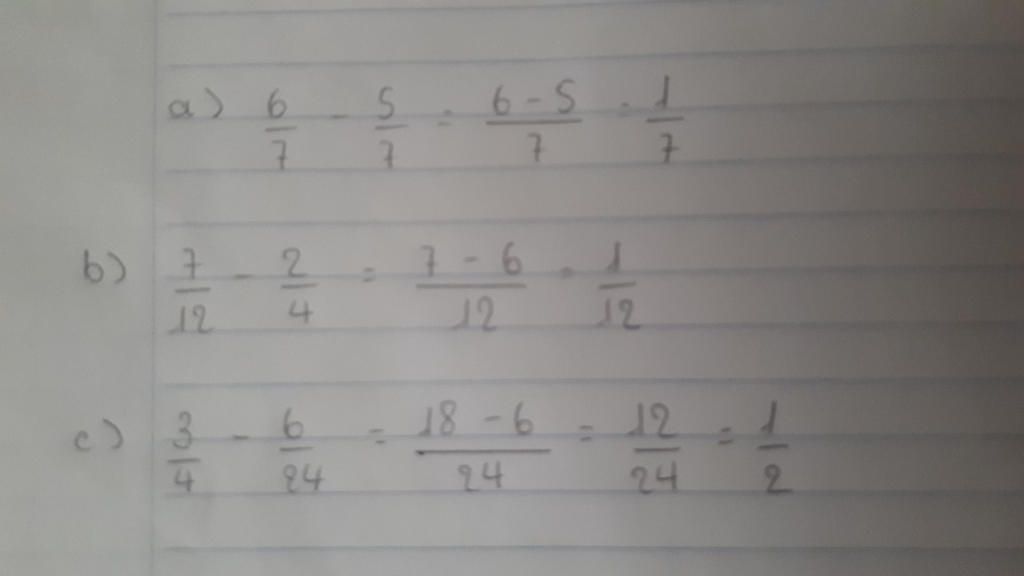 a) 6/7 - 5/7 = 6 - 5/7 = 1/7
b) 7/12 - 2/4 = 7 - 6/12 = 1/12
c) 3/4 - 6/24 = 18 - 6/24 = 12/24 = 1/2